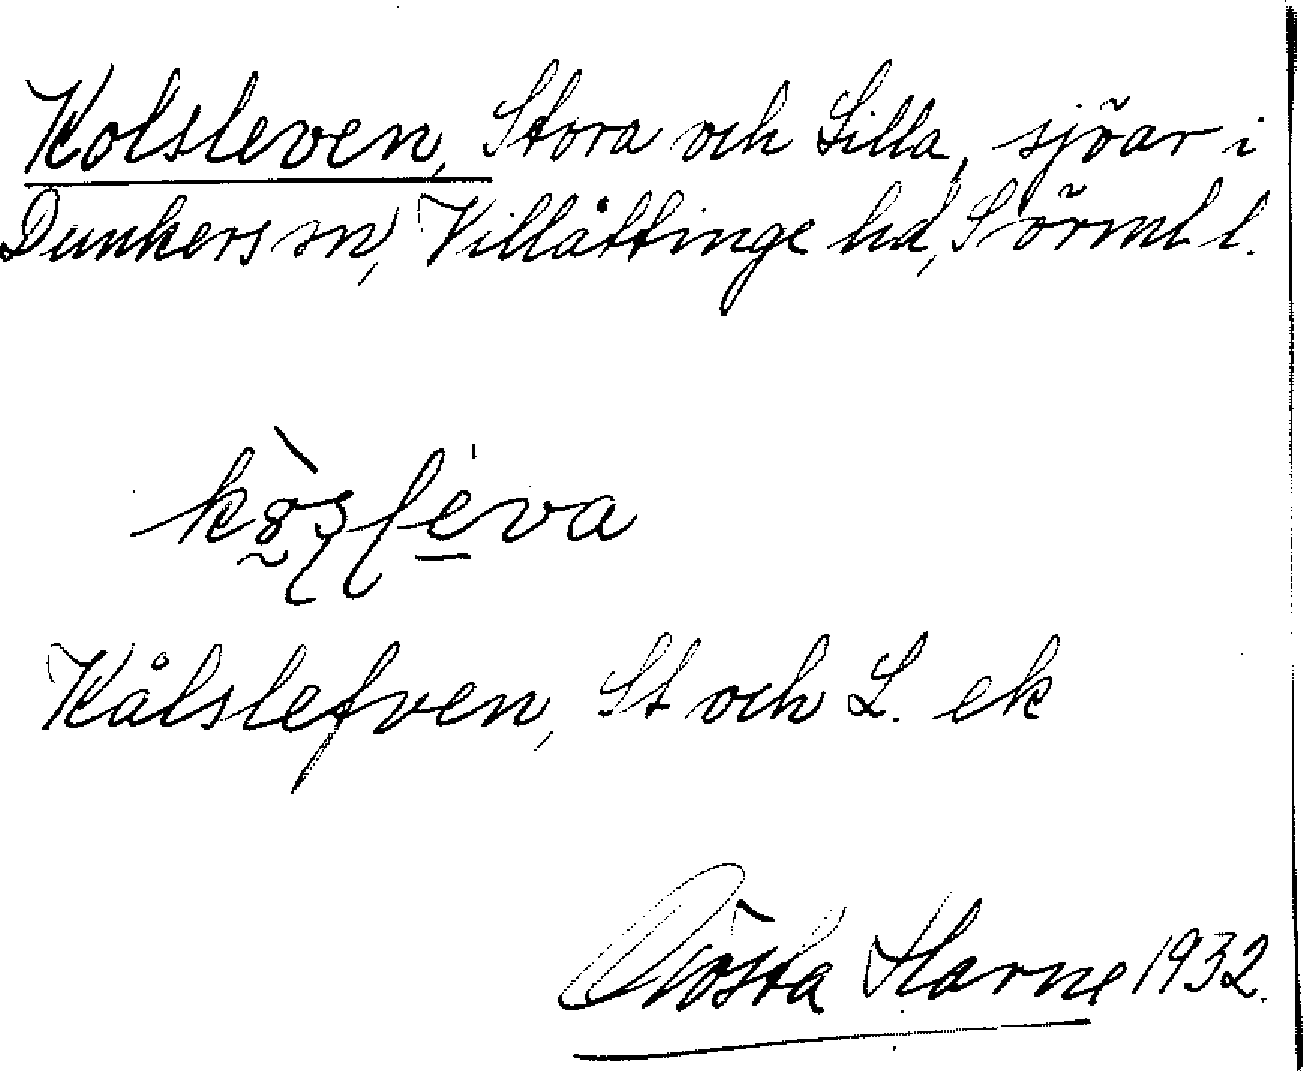 Kolsleven, Stora och Lilla, sjöar i
Dunkers sn, Villåttinge hd, Sörml l.
Kålslefven, St och L. ek
Gösta Harne 1932.